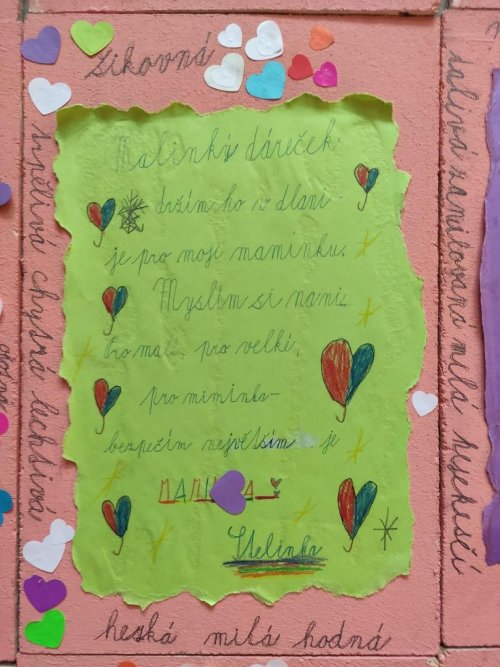 šikovná
Malinký dáreček
držím ho v dlani
je pro moji maminku.
Myslím si na ni.
Pro malé, pro velké,
pro miminka-
bezpečím největším je
MAMINKA
Stelinka
trpělivá chytrá lechtivá
heská milá hodná
zamilovaná milá